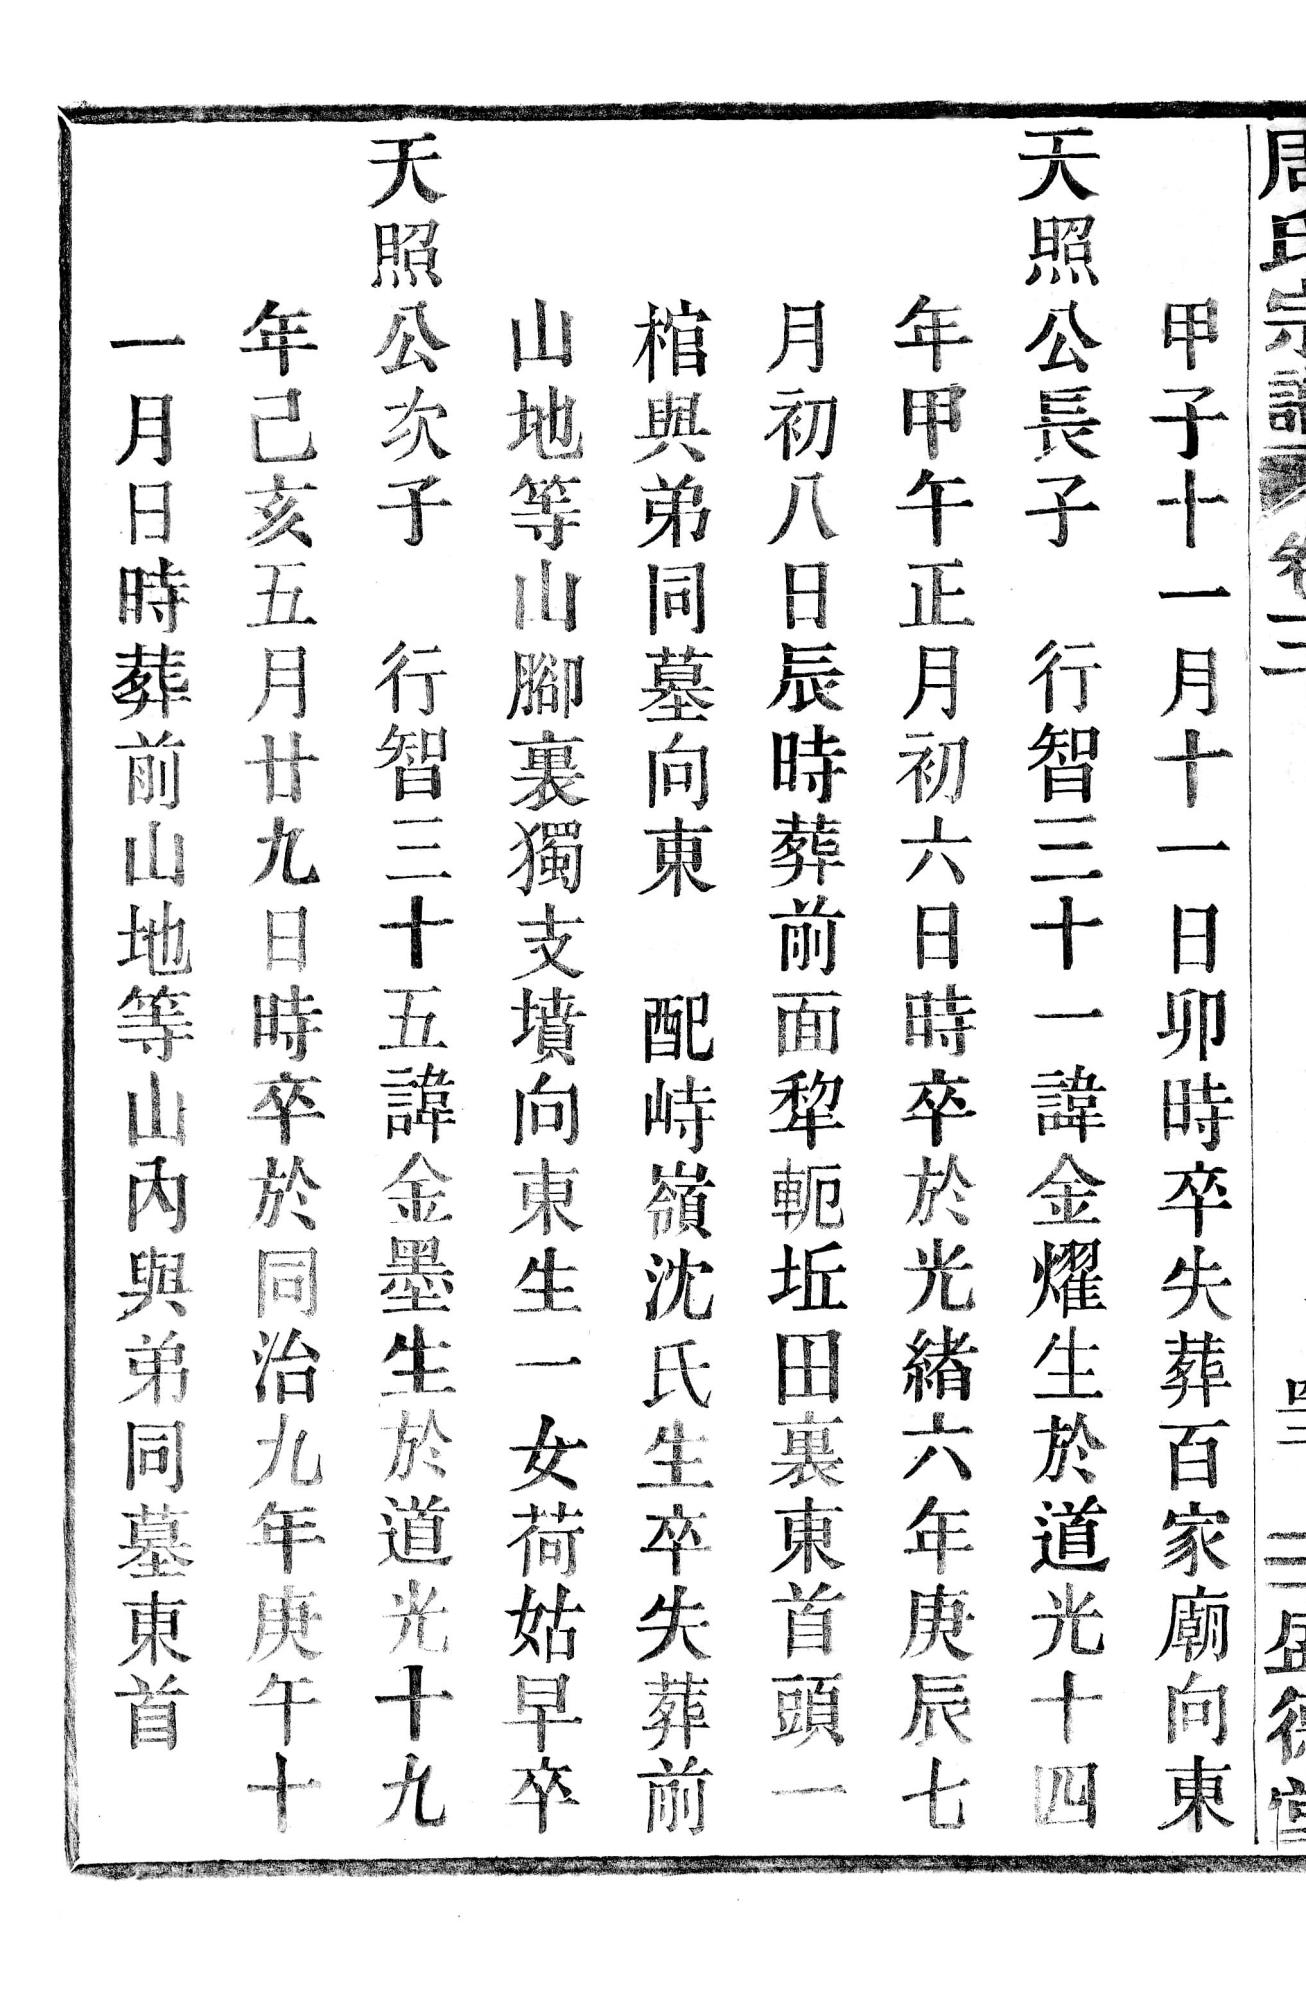 周氏宗譜 卷三 三盛德堂
甲子十一月十一日卯時卒失葬百家廟向東
天照公長子 行智三十一諱金燿生於道光十四
年甲午正月初六日時卒於光緒六年庚辰七
月初八日辰時葬前面犂軛坵田裏東首頭一
棺與弟同墓向東 配峙嶺沈氏生卒失葬前
山地等山山腳裏獨支墳向東生一女荷姑早卒
天照公次子 行智三十五諱金墨生於道光十九
年己亥五月廿九日時卒於同治九年庚午十
一月日時葬前山地等山內與弟同墓東首